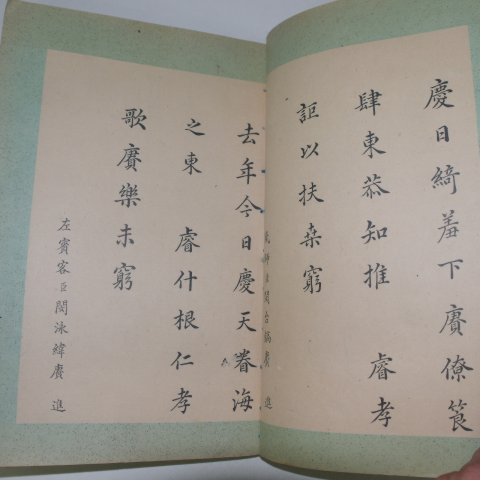 慶日綺羞下賡僚筤
肆東恭知推 睿孝
詎以扶堯窮
去年今日慶天眷海
之東 睿什根仁孝
歌賡樂未窮
左賓客臣閔泳緯賡 進